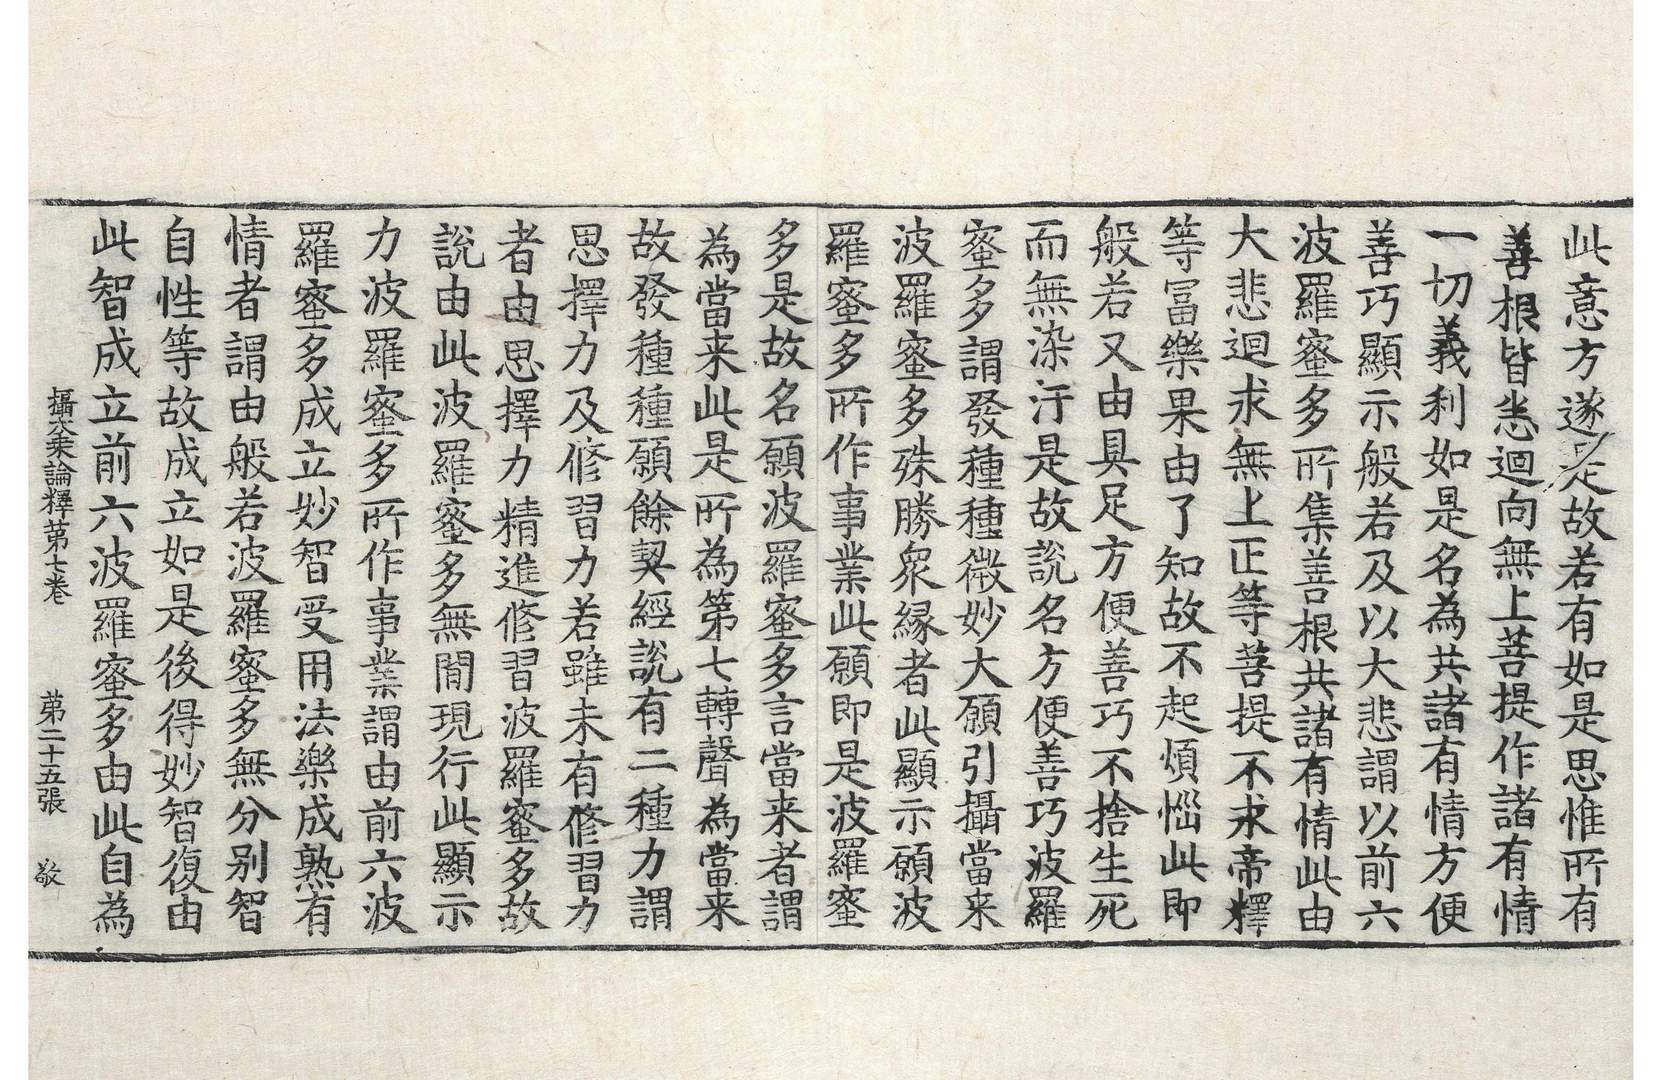 此意方遂是故若有如是思惟所有
善根皆悉迴向無上菩提作諸有情
一切義利如是名為共諸有情方便
善巧顯示般若及以大悲謂以前六
波羅蜜多所集善根共諸有情此由
大悲迴求無上正等菩提不求帝釋
等冨樂果由了知故不起煩惱此即
般若又由具足方便善巧不捨生死
而無染汙是故說名方便善巧波羅
蜜多謂發種種微妙大願引攝當来
波羅蜜多殊勝衆緣者此顯示願波
羅蜜多所作事業此願即是波羅蜜
多是故名願波羅蜜多言當来者謂
為當来此是所為第七轉聲為當来
故發種種願餘契經說有二種力謂
思擇力及修習力若雖未有修習力
者由思擇力精進修習波羅蜜多故
說由此波羅蜜多無間現行此顯示
力波羅蜜多所作事業謂由前六波
羅蜜多成立妙智受用法樂成熟有
情者謂由般若波羅蜜多無分別智
自性等故成立如是後得妙智復由
此智成立前六波羅蜜多由此自為
攝大乘論釋第七卷 第二十五張 敬